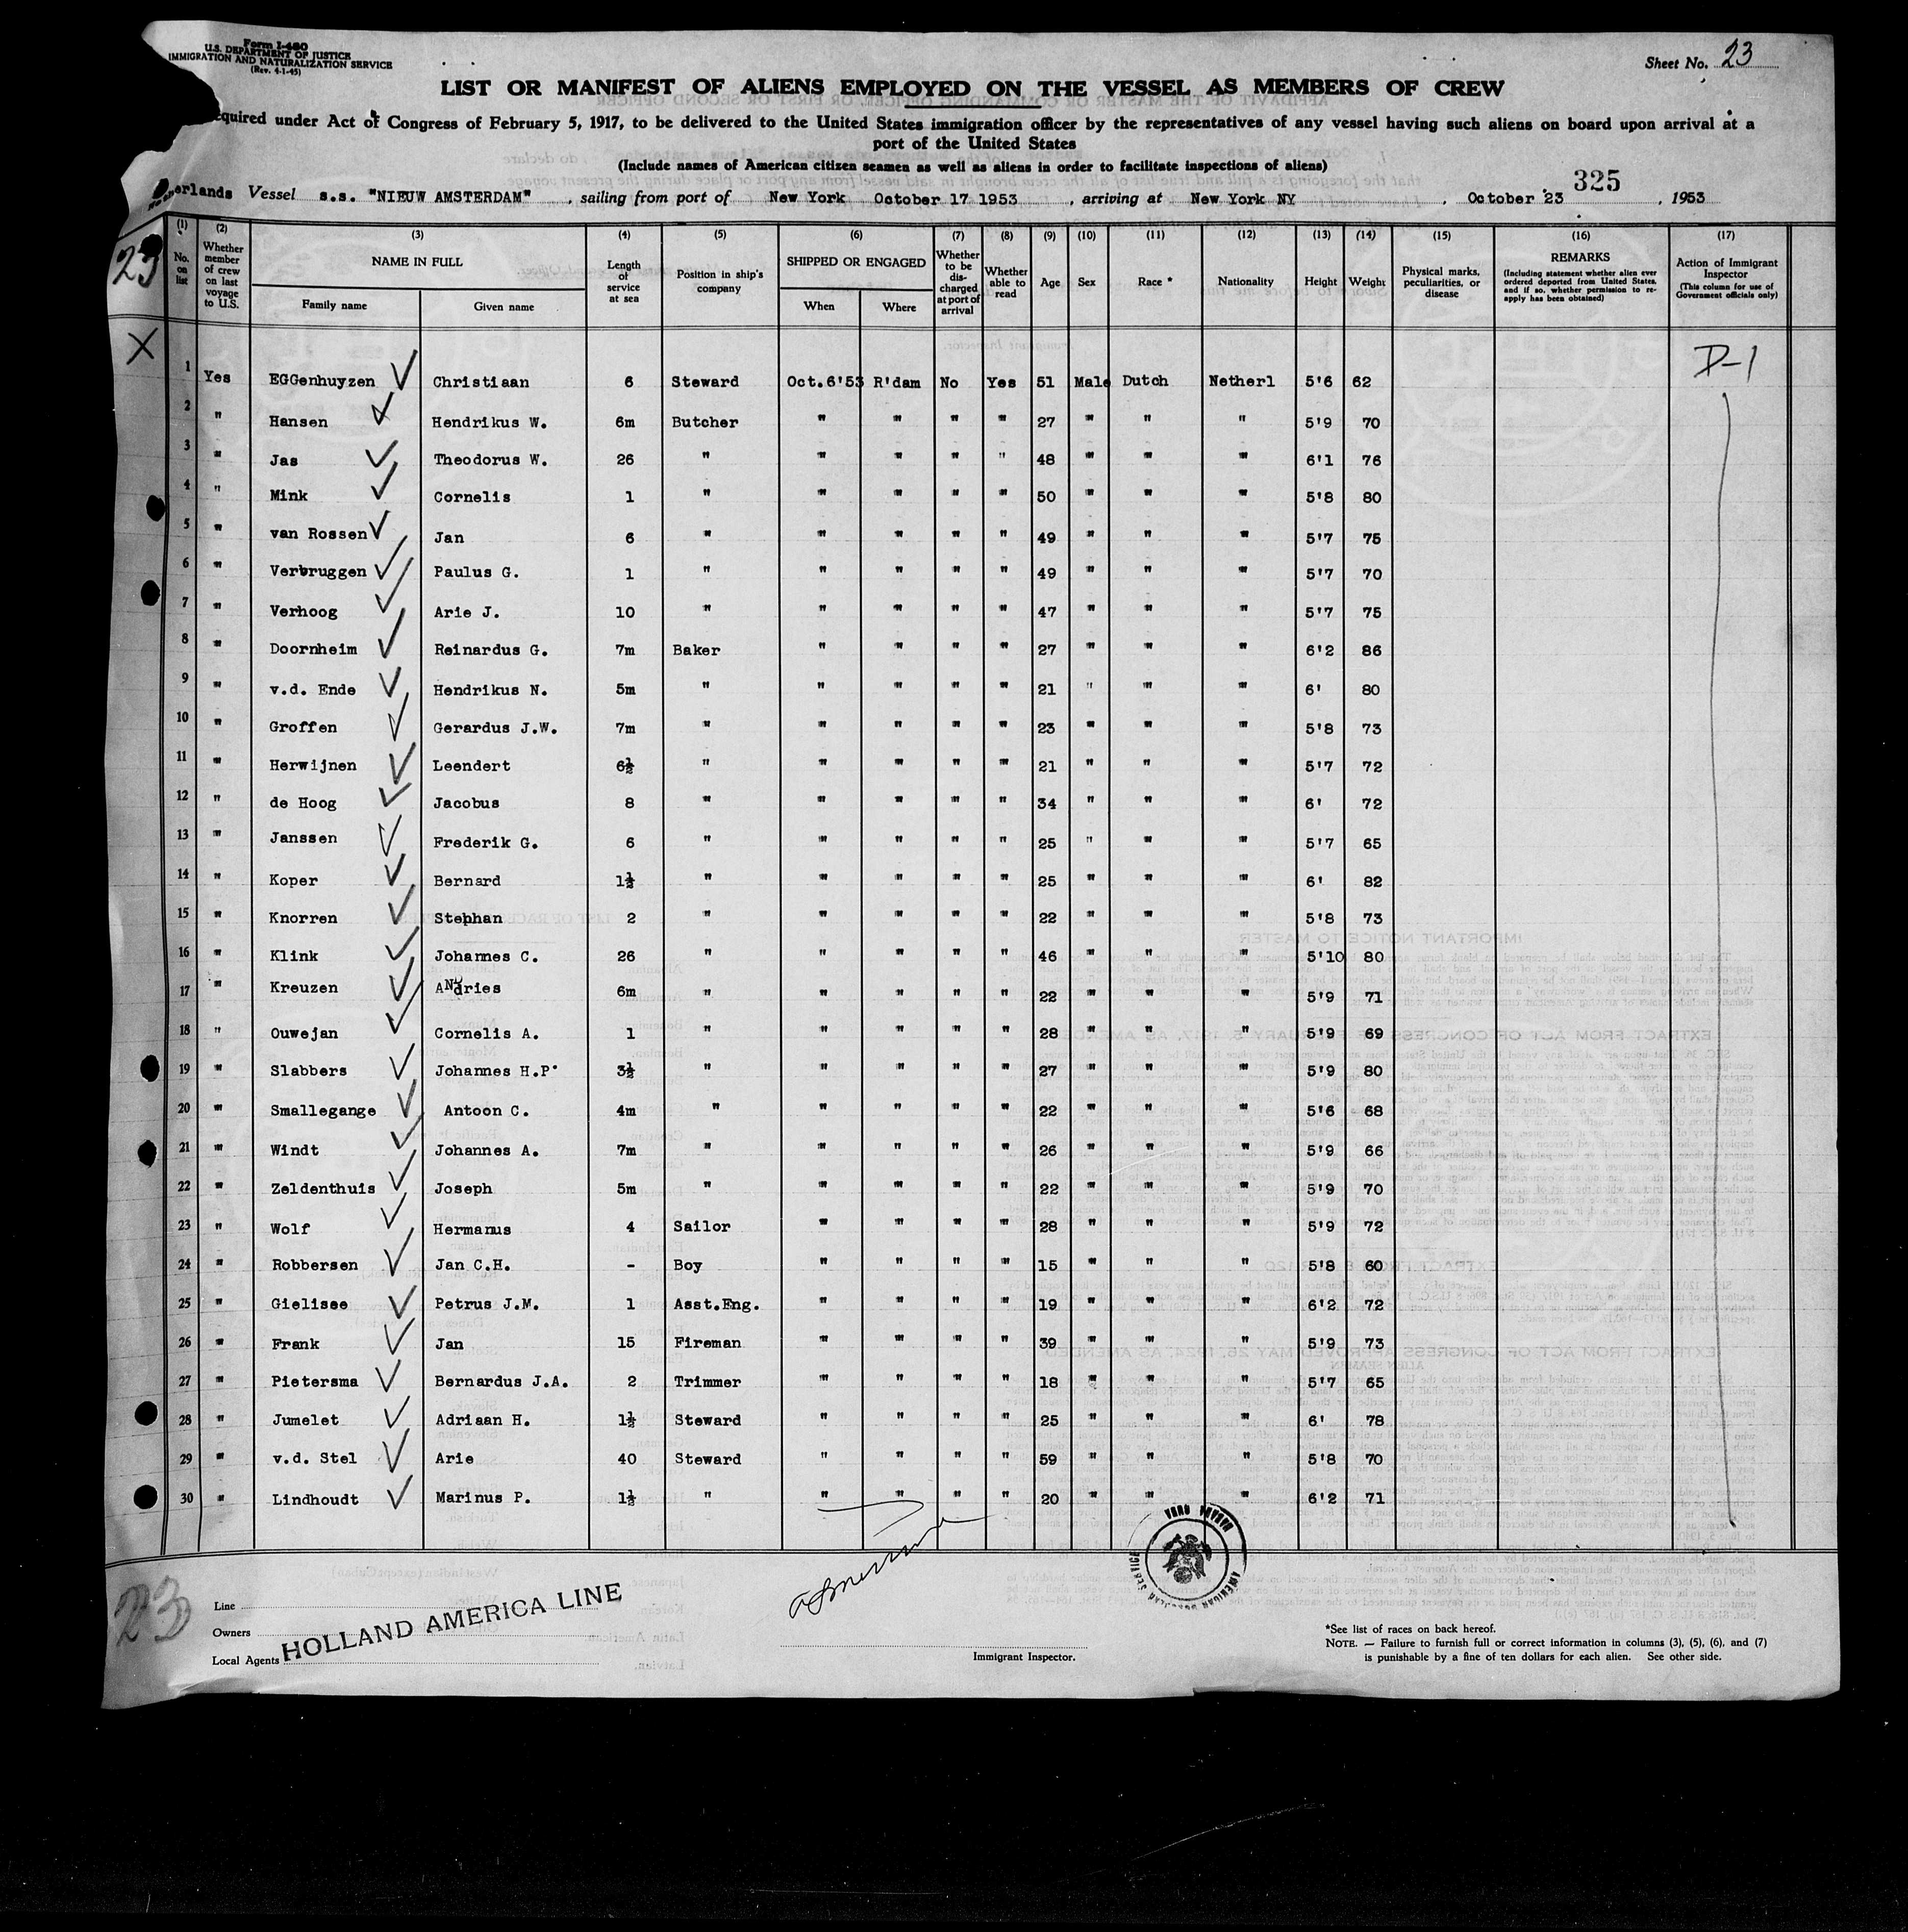 Form I-480
U.S. DEPARTMENT OF JUSTICE
IMMIGRATION AND NATURALIZATION SERVICE
(Rev. 4-1-45)
Sheet No. 23
LIST OR MANIFEST OF ALIENS EMPLOYED ON THE VESSEL AS MEMBERS OF CREW
equired under Act of Congress of February 5, 1917, to be delivered to the United States immigration officer by the representatives of any vessel having such aliens on board upon arrival at a
port of the United States
(Include names of American citizen seamen as well as aliens in order to facilitate inspections of aliens)
325
erlands Vessel s.s. "NIEUW AMSTERDAM", sailing from port of New York October 17 1953, arriving at New York NY, October 23, 1953
23
(1) No. on list (2) Whether member of crew on last voyage to U.S. (3) NAME IN FULL Family name Given name (4) Length of service at sea (5) Position in ship's company (6) SHIPPED OR ENGAGED When Where (7) Whether to be discharged at port of arrival (8) Whether able to read (9) Age (10) Sex (11) Race * (12) Nationality (13) Height (14) Weight (15) Physical marks, peculiarities, or disease (16) REMARKS (Including statement whether alien ever ordered deported from United States, and if so, whether permission to reapply has been obtained) (17) Action of Immigrant Inspector (This column for use of Government officials only)
X
D-1
1 Yes EGGenhuyzen Christiaan 6 Steward Oct.6'53 R'dam No Yes 51 Male Dutch Netherl 5'6 62
2 " Hansen Hendrikus W. 6m Butcher " " " " 27 " " " 5'9 70
3 " Jas Theodorus W. 26 " " " " " 48 " " " 6'1 76
4 " Mink Cornelis 1 " " " " " 50 " " " 5'8 80
5 " van Rossen Jan 6 " " " " " 49 " " " 5'7 75
6 " Verbruggen Paulus G. 1 " " " " " 49 " " " 5'7 70
7 " Verhoog Arie J. 10 " " " " " 47 " " " 5'7 75
8 " Doornheim Reinardus G. 7m Baker " " " " 27 " " " 6'2 86
9 " v.d. Ende Hendrikus N. 5m " " " " " 21 " " " 6' 80
10 " Groffen Gerardus J.W. 7m " " " " " 23 " " " 5'8 73
11 " Herwijnen Leendert 6½ " " " " " 21 " " " 5'7 72
12 " de Hoog Jacobus 8 " " " " " 34 " " " 6' 72
13 " Janssen Frederik G. 6 " " " " " 25 " " " 5'7 65
14 " Koper Bernard 1½ " " " " " 25 " " " 6' 82
15 " Knorren Stephan 2 " " " " " 22 " " " 5'8 73
16 " Klink Johannes C. 26 " " " " " 46 " " " 5'10 80
17 " Kreuzen ANdries 6m " " " " " 22 " " " 5'9 71
18 " Ouwejan Cornelis A. 1 " " " " " 28 " " " 5'9 69
19 " Slabbers Johannes H.P. 3½ " " " " " 27 " " " 5'9 80
20 " Smallegange Antoon C. 4m " " " " " 22 " " " 5'6 68
21 " Windt Johannes A. 7m " " " " " 26 " " " 5'9 66
22 " Zeldenthuis Joseph 5m " " " " " 22 " " " 5'9 70
23 " Wolf Hermanus 4 Sailor " " " " 28 " " " 5'9 72
24 " Robbersen Jan C.H. - Boy " " " " 15 " " " 5'8 60
25 " Gielisee Petrus J.M. 1 Asst.Eng. " " " " 19 " " " 6'2 72
26 " Frank Jan 15 Fireman " " " " 39 " " " 5'9 73
27 " Pietersma Bernardus J.A. 2 Trimmer " " " " 18 " " " 5'7 65
28 " Jumelet Adriaan H. 1½ Steward " " " " 25 " " " 6' 78
29 " v.d. Stel Arie 40 Steward " " " " 59 " " " 5'8 70
30 " Lindhoudt Marinus P. 1½ " " " " " 20 " " " 6'2 71
23
Line
Owners
Local Agents
HOLLAND AMERICA LINE
Immigrant Inspector.
*See list of races on back hereof.
NOTE. — Failure to furnish full or correct information in columns (3), (5), (6), and (7)
is punishable by a fine of ten dollars for each alien. See other side.